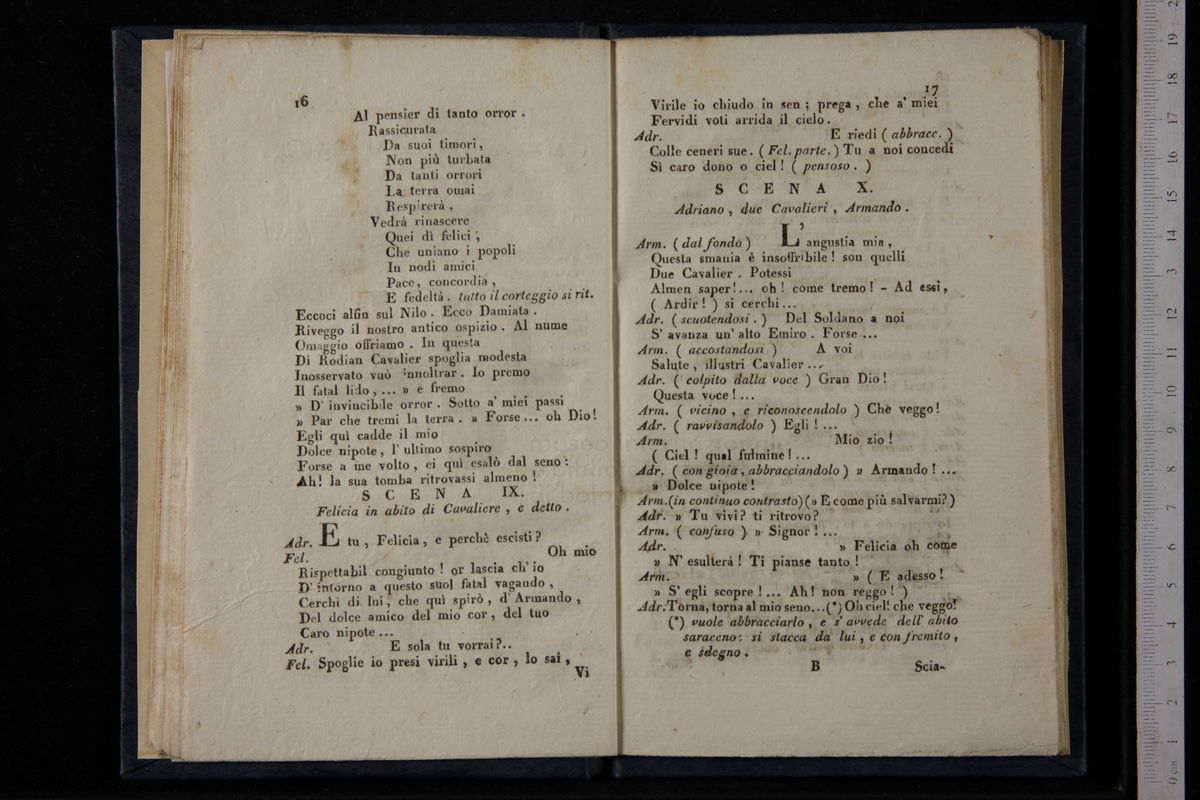 16
Al pensier di tanto orror .
Rassicurata
Da suoi timori ,
Non più turbata
Da tanti orrori
La terra omai
Respirerà .
Vedrà rinascere
Quei dì felici ,
Che uniano i popoli
In nodi amici
Pace , concordia ,
E fedeltà . tutto il corteggio si rit.
Eccoci alfin sul Nilo . Ecco Damiata .
Riveggo il nostro antico ospizio . Al nume
Omaggio offriamo . In questa
Di Rodian Cavalier spoglia modesta
Inosservato vuò innoltrar . Io premo
Il fatal lido , ... » e fremo
» D' invincibile orror . Sotto a' miei passi
» Par che tremi la terra . » Forse ... oh Dio !
Egli quì cadde il mio
Dolce nipote , l' ultimo sospiro
Forse a me volto , ei quì esalò dal seno :
Ah ! la sua tomba ritrovassi almeno !
SCENA IX.
Felicia in abito di Cavaliere , e detto .
Adr. E tu , Felicia , e perchè escisti ?
Fel. Oh mio
Rispettabil congiunto ! or lascia ch' io
D' intorno a questo suol fatal vagando ,
Cerchi di lui , che quì spirò , d' Armando ,
Del dolce amico del mio cor , del tuo
Caro nipote ...
Adr. E sola tu vorrai ?..
Fel. Spoglie io presi virili , e cor , lo sai ,
Vi
17
Virile io chiudo in sen ; prega , che a' miei
Fervidi voti arrida il cielo .
Adr. E riedi ( abbracc. )
Colle ceneri sue . ( Fel. parte. ) Tu a noi concedi
Sì caro dono o ciel ! ( pensoso . )
SCENA X.
Adriano , due Cavalieri , Armando .
Arm. ( dal fondo ) L' angustia mia ,
Questa smania è insoffribile ! son quelli
Due Cavalier . Potessi
Almen saper !... oh ! come tremo ! - Ad essi ,
( Ardir ! ) si cerchi ...
Adr. ( scuotendosi . ) Del Soldano a noi
S' avanza un' alto Emiro . Forse ...
Arm. ( accostandosi ) A voi
Salute , illustri Cavalier ...
Adr. ( colpito dalla voce ) Gran Dio !
Questa voce ! ...
Arm. ( vicino , e riconoscendolo ) Chè veggo !
Adr. ( ravvisandolo ) Egli ! ...
Arm. Mio zio !
( Ciel ! qual fulmine ! ...
Adr. ( con gioia , abbracciandolo ) » Armando ! ...
» Dolce nipote !
Arm. (in continuo contrasto) (» E come più salvarmi? )
Adr. » Tu vivi ? ti ritrovo ?
Arm. ( confuso ) » Signor ! ...
Adr. » Felicia oh come
» N' esulterà ! Ti pianse tanto !
Arm. » ( E adesso !
» S' egli scopre ! ... Ah ! non reggo ! )
Adr. Torna, torna al mio seno...(*) Oh ciel! che veggo!
(*) vuole abbracciarlo , e s' avvede dell' abito
saraceno : si stacca da lui , e con fremito ,
e sdegno .
B Scia-
0 cm 1 2 3 4 5 6 7 8 9 10 11 12 13 14 15 16 17 18 19 2